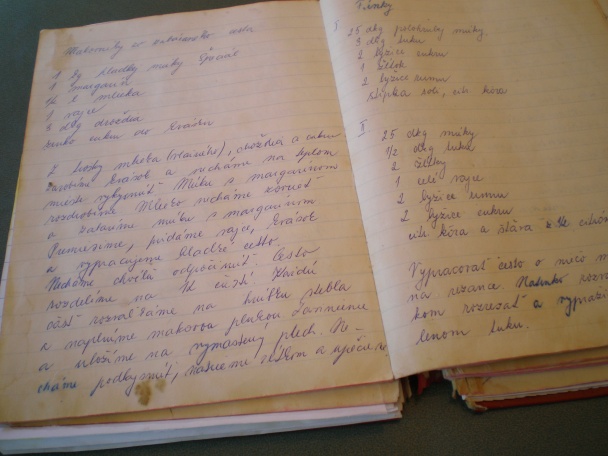 1 kg hladkej múky špeciál
1 margarín
1/4 l mlieka
1 vajce
3 dkg droždia
cukru do kvásku
Z trošky mlieka (vlažného), droždia a cukru
zarobíme kvások a necháme na teplom
mieste vykysnúť. Múku s margarínom
rozdrobíme. Mlieko necháme zovrieť
a zalejeme múku s margarínom
Premiesime, pridáme vajce, kvások
a vypracujeme hladké cesto.
Necháme chvíľu odpočinúť. Cesto
rozdelíme na 12 častí. Každú
časť rozvaľkáme na hrúbku stebla
a naplníme makovou plnkou
a uložíme na vymastený plech. Ne-
cháme podkysnúť, natrieme vajcom a upečieme
Fánky
I 25 dkg polohrubej múky.
3 dkg tuku
2 lyžice cukru
1 žĺtok
2 lyžice rumu
štipka soli, cit. kôra
II 25 dkg múky
1/2 dkg tuku
2 žĺtky
1 celé vajce
2 lyžice rumu
2 lyžice cukru
cit. kôra a šťava z 1/2 citróna
Vypracovať cesto o niečo
na rezance. Natenko
kom rozrezať a
lenom tuku.